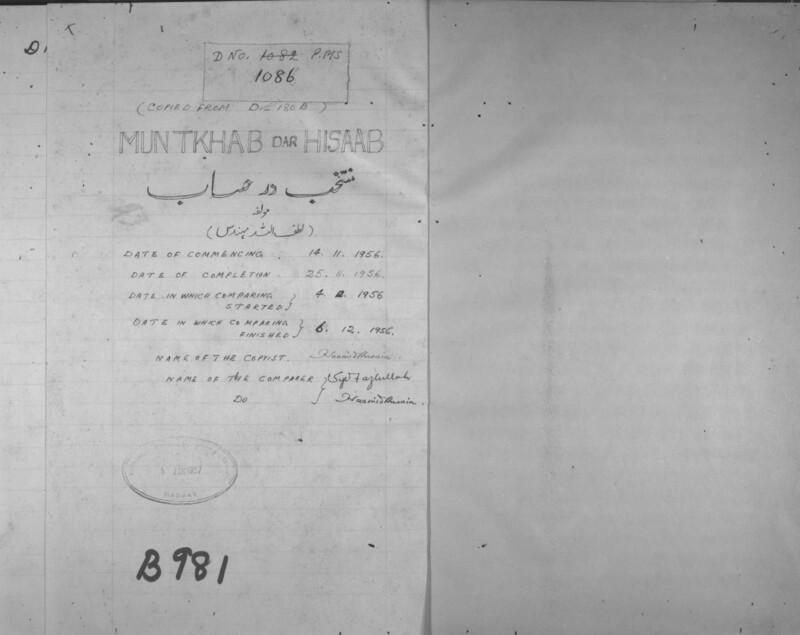 D.
D NO. 1082 P.MS
1086
(COPIED FROM D=180B)
MUNTKHAB DAR HISAAB
منتخب در حساب
مولفہ
(لطف اللہ مہندس)
DATE OF COMMENCING. 14. 11. 1956.
DATE OF COMPLETION. 25. 11. 1956.
DATE IN WHICH COMPARING STARTED} 4. 12. 1956
DATE IN WHICH COMPARING FINISHED} 6. 12. 1956.
NAME OF THE COPYIST. Haamid Husain.
NAME OF THE COMPARER } Syed Fazlullah
DO } Haamid Husain.
MADRAS
B981